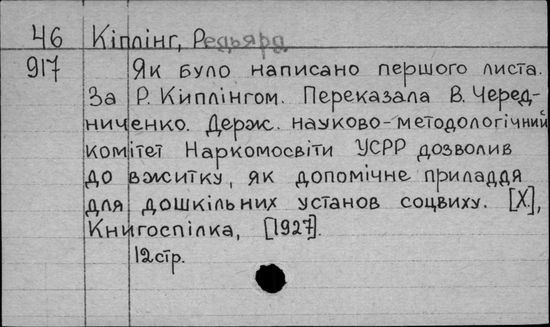 46 Кіплінг, Редьярд
917 Як було написано першого листа.
За Р. Киплінгом. Переказала В. Черед-
ниченко. Держ. науково-методологічний
комітет Наркомосвіти УСРР дозволив
до вжитку, як допомічне приладдя
для дошкільних установ соцвиху. [Х.],
Книгоспілка, [1927].
12стр.